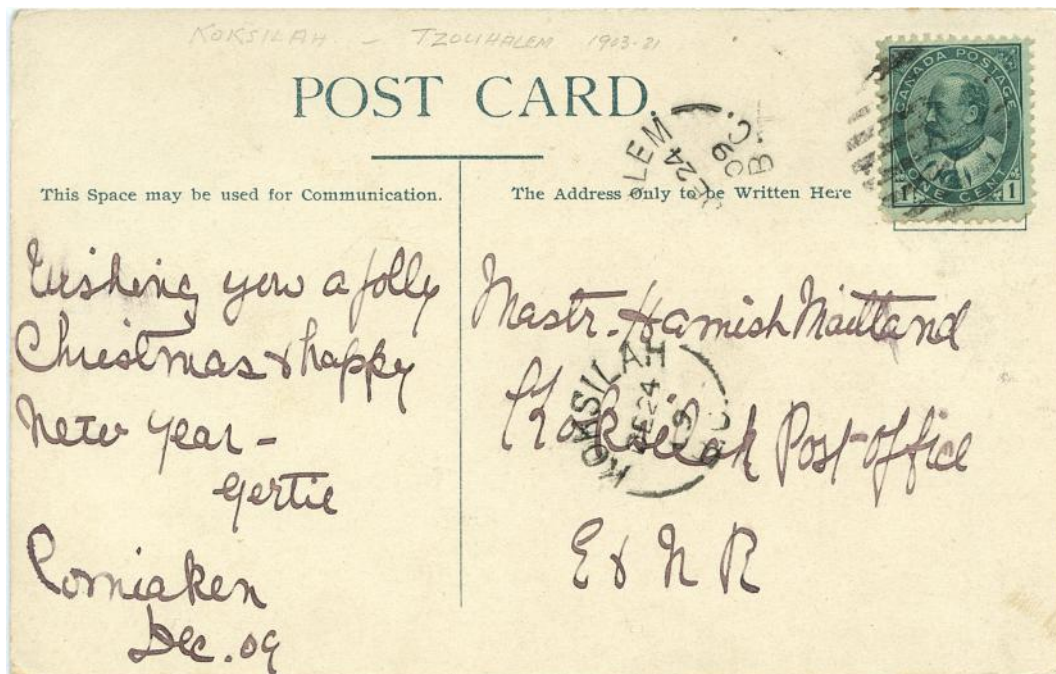 KOKSILAH - TZOUHALEM 1903-21
POST CARD.
CANADA POSTAGE
ONE CENT
1 1
LEM
DE 24
09
B.C.
This Space may be used for Communication.
The Address Only to be Written Here
Wishing you a folly
Christmas & happy
New Year -
Gertie
Comiaken
Dec. 09
Mastr. Hamish Maitland
Koksilah Post-office
E & N R
KOKSILAH
DE 24
B.C.